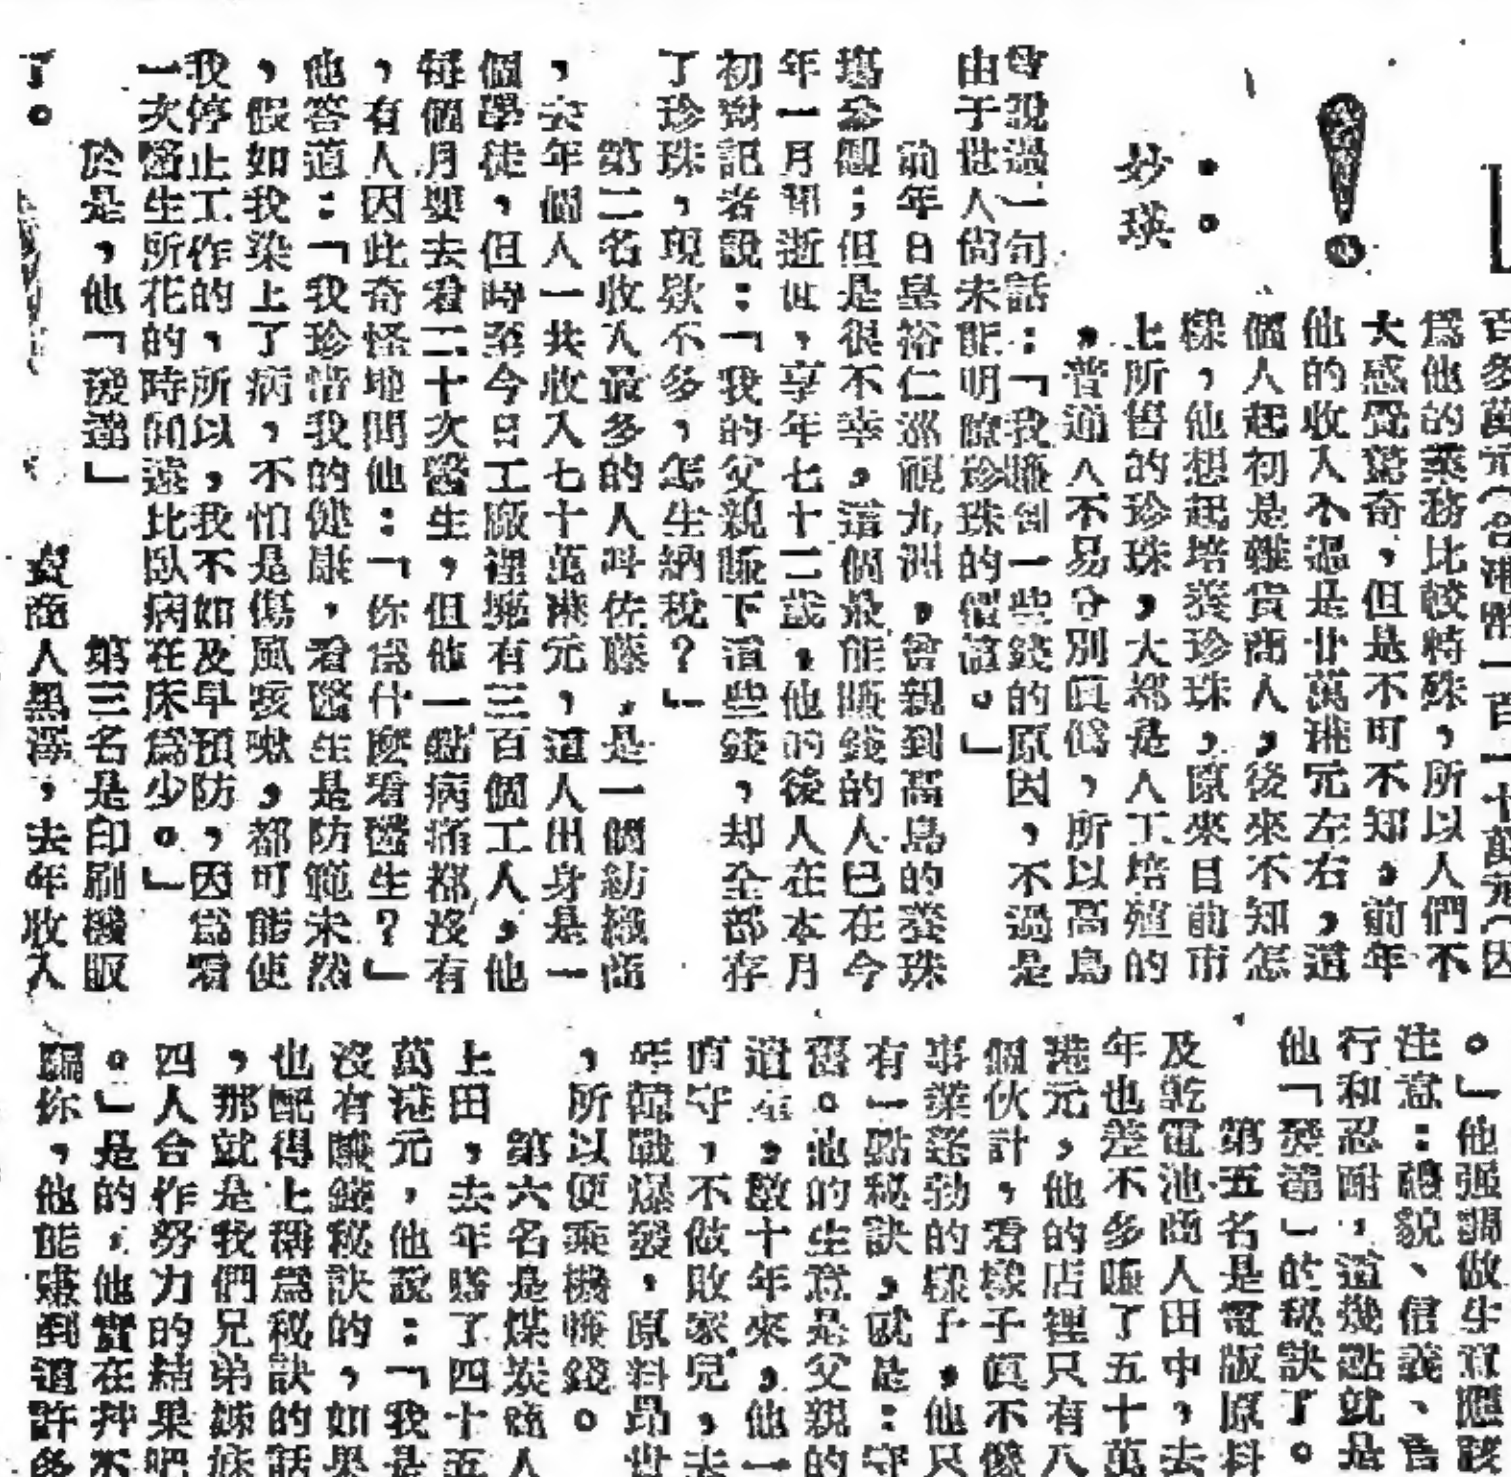 妙瑛
百多萬元（合港幣一百一十萬元（因
爲他的業務比較特殊，所以人們不
大感覺驚奇，但是不可不知，前年
他的收入不過是廿萬港元左右，這
個人起初是雜貨商人，後來不知怎
樣，他想起培養珍珠，原來目前市
上所售的珍珠，大都是人工培殖的
，普通人不易分別眞僞，所以高島
曾說過一句話：「我賺到一些錢的原因，不過是
由于世人尙未能明瞭珍珠的價值。」
前年日皇裕仁巡視九洲，曾親到高島的養珠
塲參觀；但是很不幸，這個最能賺錢的人已在今
年一月間逝世，享年七十二歲，他的後人在本月
初對記者說：「我的父親賺下這些錢，却全部存
了珍珠，現欵不多，怎生納稅？」
第二名收入最多的人叫佐藤，是一個紡織商
，去年個人一共收入七十萬港元，這人出身是一
個學徒，但時至今日工廠裡擁有三百個工人，他
每個月要去看二十次醫生，但他一點病痛都沒有
，有人因此奇怪地問他：「你爲什麼看醫生？」
他答道：「我珍惜我的健康，看醫生是防範未然
，假如我染上了病，不怕是傷風咳嗽，都可能使
我停止工作的，所以，我不如及早預防，因爲看
一次醫生所花的時間遠比臥病在床爲少。」
於是，他「發達」
了。
第三名是印刷機販
賣商人黑澤，去年收入
。」他强調做生意應該
注意：禮貌、信義、言
行和忍耐，這幾點就是
他「發達」的秘訣了。
第五名是電版原料
及乾電池商人田中，去
年也差不多賺了五十萬
港元，他的店裡只有八
個伙計，看樣子眞不像
事業蓬勃的樣子，他只
有一點秘訣，就是：守
舊。他的生意是父親的
遺產，數十年來，他一
直守，不做敗家兒，去
年韓戰爆發，原料昂世
，所以便乘機賺錢。
第六名是煤炭商人
上田，去年賺了四十五
萬港元，他說：「我是
沒有賺錢秘訣的，如果
也配得上稱爲秘訣的話
，那就是我們兄弟姊妹
四人合作努力的結果吧
。」是的，他實在并不
騙你，他能賺到這許多